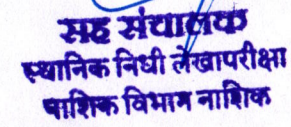 सह संचालक
स्थानिक निधी लेखापरीक्षा
नाशिक विभाग नाशिक